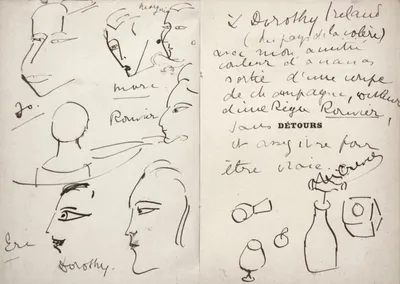 Marg
marc.
Jo.
Rouvier
Eri
Dorothy.
à Dorothy Ireland
(du pays de la colère)
avec mon amitié
couleur d'ananas
sortie d'une coupe
de champagne,
d'une Régie Rouvier,
sans DÉTOURS
et assez ivre pour
être vraie.